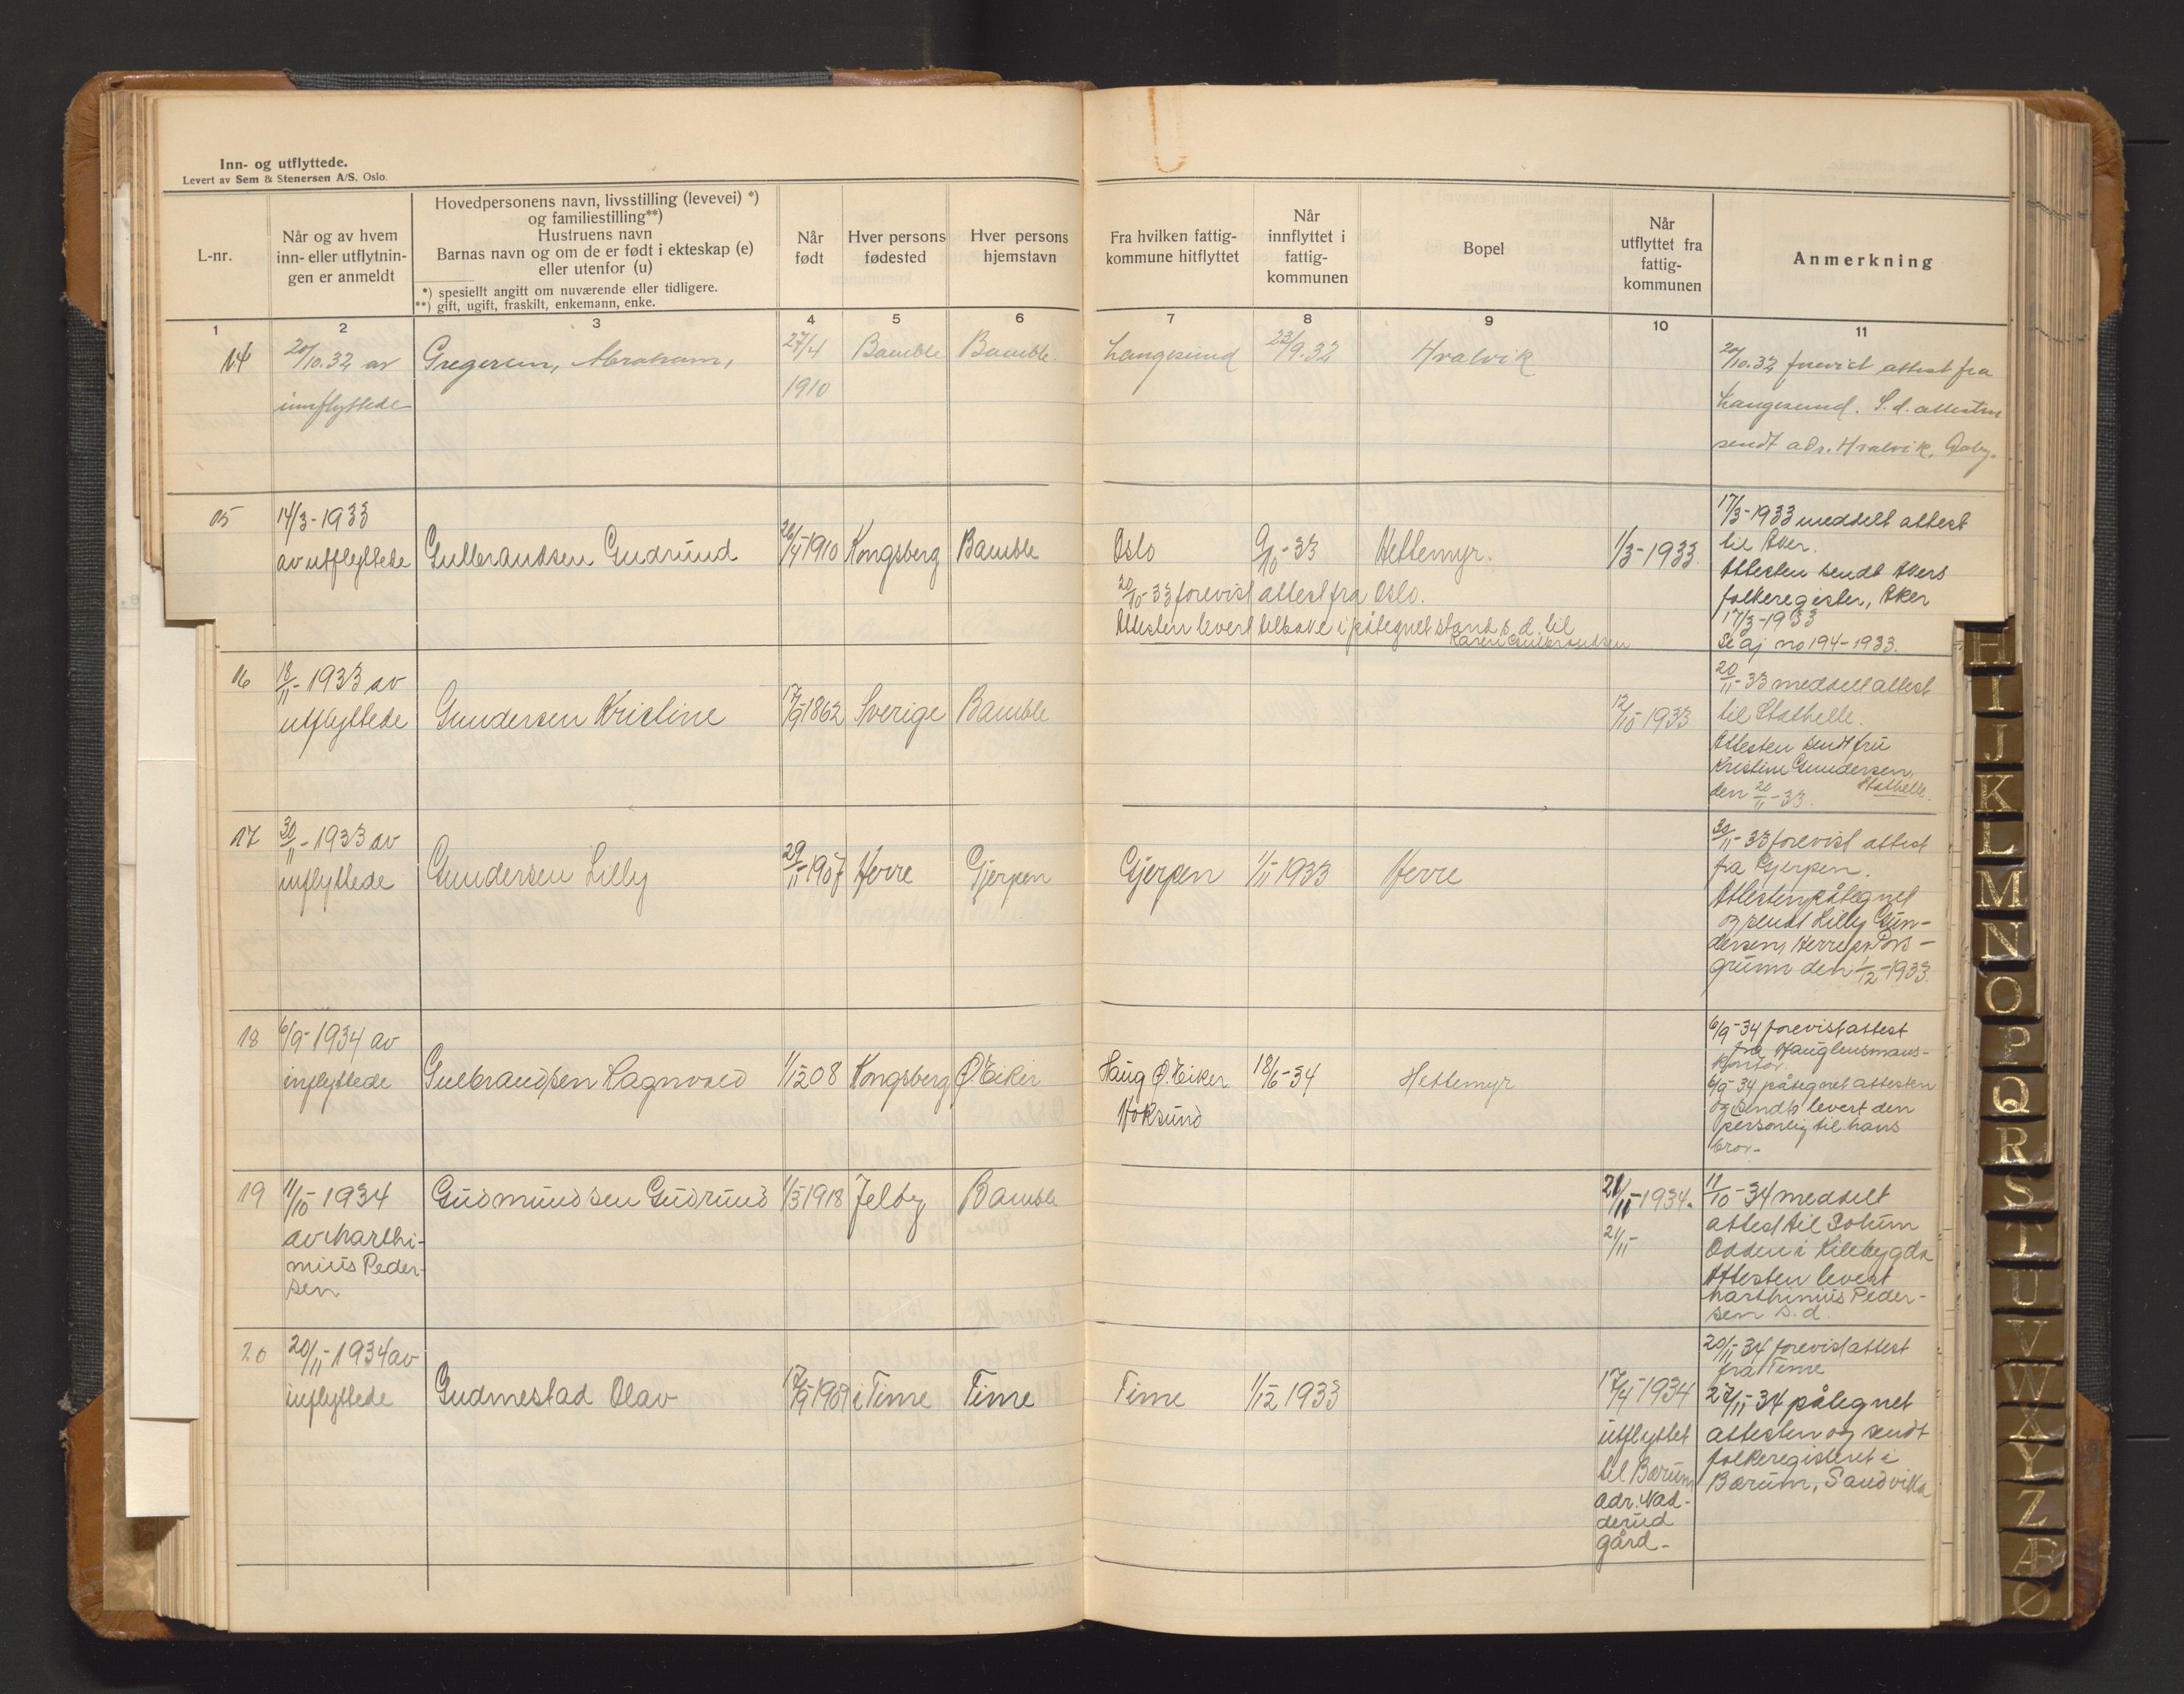 Inn- og utflyttede.
Levert av Sem & Stenersen A/S. Oslo.
L-nr.
Når og av hvem
inn- eller utflytnin-
gen er anmeldt
Hovedpersonens navn, livsstilling (levevei) *)
og familiestilling**)
Hustruens navn
Barnas navn og om de er født i ekteskap (e)
eller utenfor (u)
*) spesielt angitt om nuværende eller tidligere.
**) gift, ugift, fraskilt, enkemann, enke.
Når
født
Hver persons
fødested
Hver persons
hjemstavn
Fra hvilken fattig-
kommune hitflyttet
Når
innflyttet i
fattig-
kommunen
Bopel
Når
utflyttet fra
fattig-
kommunen
Anmerkning
1 2 3 4 5 6 7 8 9 10 11
14 20/10.32 av Gregersen, Abraham, 27/4 Bamble Bamble. Langesund 23/9.32 Hvalvik
innflyttede 1910
20/10.32 forevist attest fra
Langesund. S.d. attesten
sendt adr. Hvalvik,
15 14/3-1933
av utflyttede Gulbrandsen Gudrund 26/4-1910 Kongsberg Bamble Oslo 9/10-33 Hettemyr. 1/3-1933.
20/10-33 forevist attest fra Oslo.
Attesten levert tilbake i påtegnet stand s.d. til
Karen Gulbrandsen
17/3-1933 meddelt attest
til Aker.
Attesten sendt Akers
folkeregister, Aker
17/3-1933
Se aj no 194-1933.
16 18/11-1933 av
utflyttede Gundersen Kristine 17/9 1862 Sverige Bamble 12/10-1933
20/11-33 meddelt attest
til Stathelle.
Attesten sendt fru
Kristine Gundersen,
Stathelle.
den 20/11-33.
17 30/11-1933 av
innflyttede Gundersen Lilly 29/11-1907 Herre Gjerpen Gjerpen 1/11 1933 Herre
30/11-33 forevist attest
fra Gjerpen.
Attesten påtegnet
og sendt Lilly Gun-
dersen, Herre pr Pors-
grunn den 1/12-1933.
18 6/9-1934 av
innflyttede Gulbrandsen Ragnvald 1/12 08 Kongsberg Ø. Eiker Haug Ø. Eiker 18/6-34 Hettemyr
Hoksund
6/9-34 forevist attest
fra Haug lensmans-
kontor.
6/9-34 påtegnet attesten
og sendt levert den
personlig til hans
bror.
19 11/10-1934 Gudmundsen Gudrund 1/3 1918 Jelby Bamble 21/11-1934.
av Marthi-
nius Peder-
sen
21/11-
11/10-34 meddelt
attest til Solum
Odden i Kilebygda
Attesten levert
Marthinius Peder-
sen s.d.
20 20/11-1934 av
innflyttede Gudmestad Olav 17/9-1909 i Time Time Time 1/12 1933 17/4-1934
utflyttet
til Bærum
adr. Nad-
derud
gård-
20/11-34 forevist attest
fra Time
27/11-34 påtegnet
attesten og sendt
folkeregisteret i
Bærum, Sandvika
H
I
J
K
L
M
N
O
P
Q
R
S
T
U
V
W
X
Y
Z
Æ
Ø